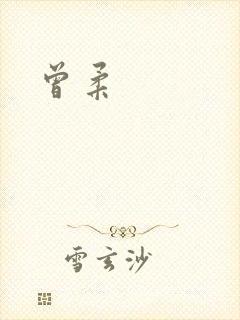 曾柔
雪玄沙